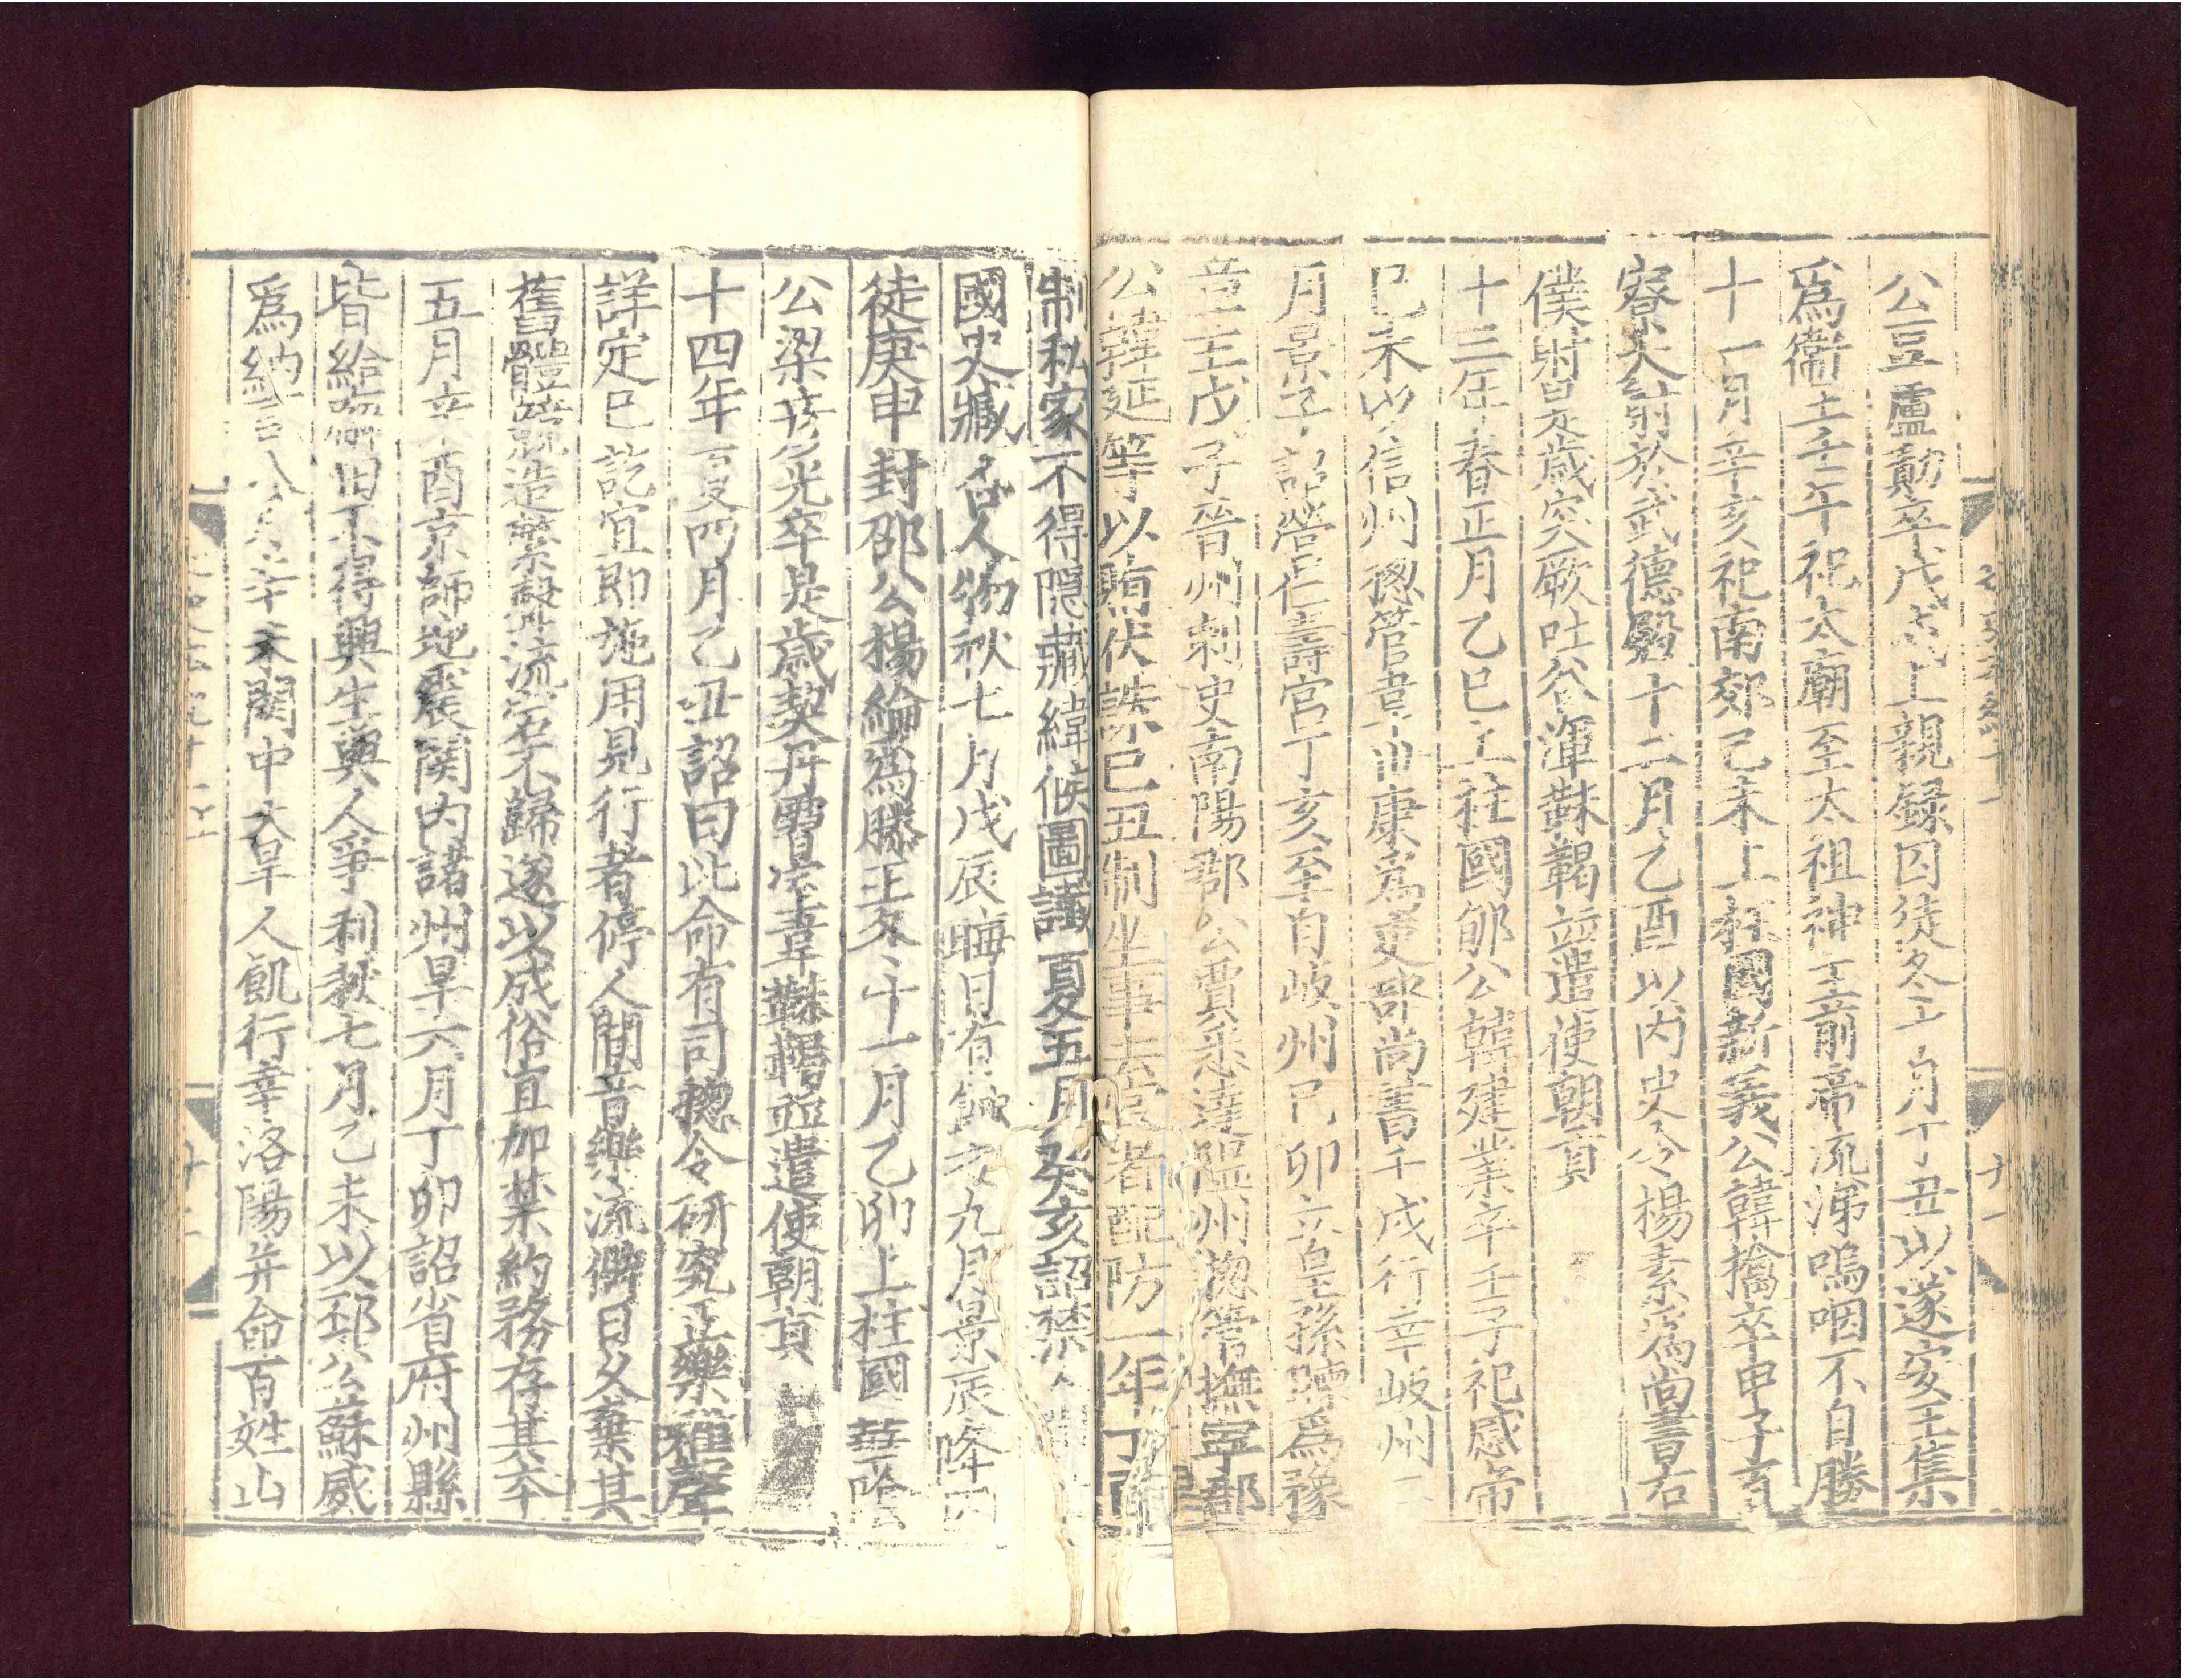 公豆盧勣卒戊戌上親錄囚徒冬十月丁丑以遂安王集
爲衞王壬午祀太廟至太祖神主前帝流涕嗚咽不自勝
十一月辛亥祀南郊己未上柱國新義公韓擒卒甲子百
寮大射於武德殿十二月乙酉以内史令楊素爲尚書右
僕射是歲突厥吐谷渾靺鞨並遣使朝貢
十三年春正月乙巳上柱國郇公韓建業卒壬子祀感帝
己未以信州揔管韋世康爲吏部尚書壬戌行幸岐州二
月景子詔營仁壽宮丁亥至自岐州己卯立皇孫暕爲豫
章王戊子晉州刺史南陽郡公賈悉達隰州揔管撫寧郡
公韓延等以賄伏誅己丑制坐事去官者配防一年丁酉
制私家不得隱藏緯候圖讖夏五月癸亥詔禁人
國史臧否人物秋七月戊辰晦日有蝕之九月景辰降囚
徒庚申封邵公楊綸爲滕王冬十一月乙卯上柱國華陰
公梁彦光卒是歲契丹霫室韋靺鞨並遣使朝貢
十四年夏四月乙丑詔曰比命有司揔令研究正樂雅聲
詳定已訖宜即施用見行者停人間音樂流僻日久棄其
舊體競造繁聲流宕不歸遂以成俗宜加禁約務存其本
五月辛酉京師地震関内諸州旱六月丁卯詔省府州縣
皆給廨田不得興生與人爭利秋七月乙未以邳公蘇威
爲納言八月辛未關中大旱人飢行幸洛陽并命百姓山